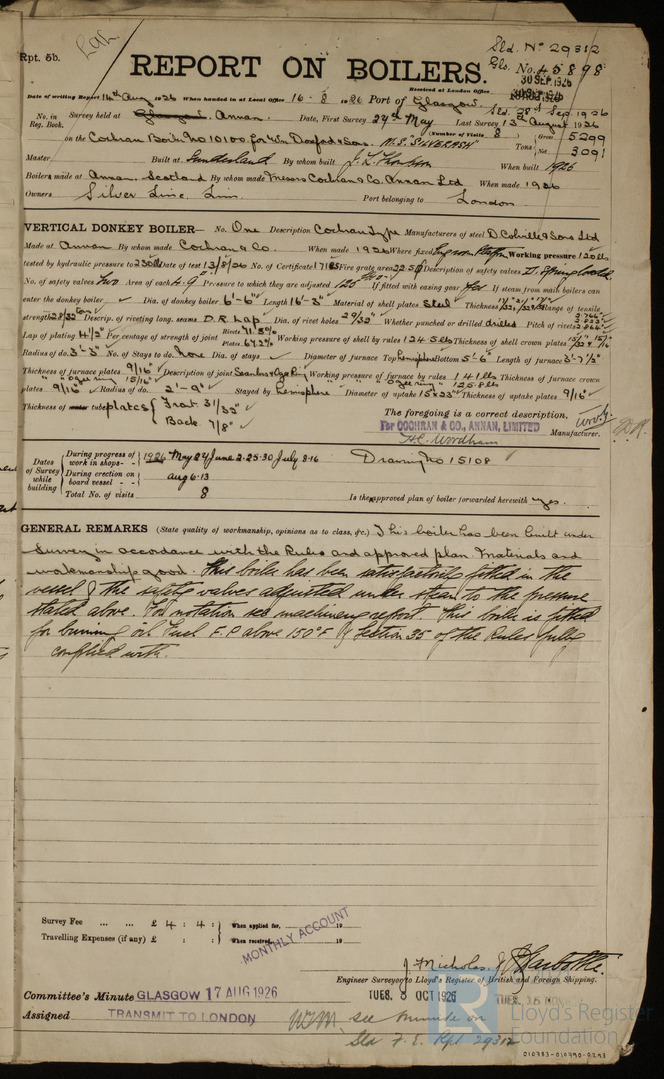 Sld. No 29312
Rpt. 5b.
REPORT ON BOILERS.
Gls. No. 45898
30 SEP. 1926
Date of writing Report 14th Aug 1926 When handed in at Local Office 16 - 8 1926 Port of Glasgow.
Received at London Office
No. in Reg. Book. Survey held at Annan. Date, First Survey 27th May Last Survey 13th August 1926
on the Cochran Boiler No 10100 for Wm Doxford & Sons. M.S. "SILVERASH" (Number of Visits 8) Tons Gross 5299 Net 3091
Master Built at Sunderland By whom built J. L. Thompson When built 1926
Boilers made at Annan. Scotland By whom made Messrs Cochran & Co. Annan Ltd When made 1926
Owners Silver Line, Lim. Port belonging to London
VERTICAL DONKEY BOILER— No. One Description Cochran Type Manufacturers of steel D. Colville & Sons Ltd
Made at Annan By whom made Cochran & Co. When made 1926 Where fixed Working pressure 120 lbs
tested by hydraulic pressure to 230 lbs Date of test 13/8/26 No. of Certificate Fire grate area 22.5 Description of safety valves D. Spring loaded
No. of safety valves Two Area of each 4.9" Pressure to which they are adjusted 125 If fitted with easing gear Yes If steam from main boilers can
enter the donkey boiler Dia. of donkey boiler 6'-6" Length 16'-3" Material of shell plates Steel Thickness Range of tensile
strength 28/32 Descrip. of riveting long. seams D.R. Lap Dia. of rivet holes 29/32" Whether punched or drilled drilled Pitch of rivets
Lap of plating 4 1/2" Per centage of strength of joint Rivets Plates Working pressure of shell by rules 124.5 lbs Thickness of shell crown plates
Radius of do. 3'-3" No. of Stays to do. None Dia. of stays Diameter of furnace Top hemisphere Bottom 5'-6" Length of furnace 3'-7 1/2"
Thickness of furnace plates 9/16" Description of joint Seamless & Ogee Ring Working pressure of furnace by rules 141 lbs Thickness of furnace crown
"Ogee ring" 15/16" "Ogee ring" 125.8 lbs
plates 9/16" Radius of do. 2'-9" Stayed by hemisphere Diameter of uptake 15 x 23" Thickness of uptake plates 9/16"
Thickness of tube plates { Front 31/32" Back 7/8"
The foregoing is a correct description,
For COCHRAN & CO., ANNAN, LIMITED
Manufacturer.
Dates of Survey while building
During progress of work in shops - - 1926 May 27 June 2-25-30 July 8-16
During erection on board vessel - - Aug 6-13
Total No. of visits 8
Drawing No 15108
Is the approved plan of boiler forwarded herewith yes.
GENERAL REMARKS (State quality of workmanship, opinions as to class, &c.) This boiler has been built under
survey in accordance with the Rules and approved plan. Materials and
workmanship good. This boiler has been satisfactorily fitted in the
vessel & the safety valves adjusted under steam to the pressure
stated above. For notation see machinery report. This boiler is fitted
for burning oil fuel F.P. above 150°F & Section 35 of the Rules fully
complied with.
Survey Fee ... ... £ 4 : 4 : When applied for, 19
Travelling Expenses (if any) £ : : When received, 19
MONTHLY ACCOUNT
J. Nicholas.
Engineer Surveyor to Lloyd's Register of British and Foreign Shipping.
Committee's Minute GLASGOW 17 AUG 1926
TUES. 5 OCT 1926
Assigned TRANSMIT TO LONDON
see minute on
Sld F.E. Rpt 29312
Lloyd's Register
Foundation
010783-010790-0293